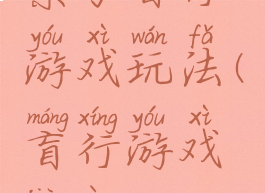 yóu xì wán fǎ
游戏玩法(
máng xíng yóu xì
盲行游戏